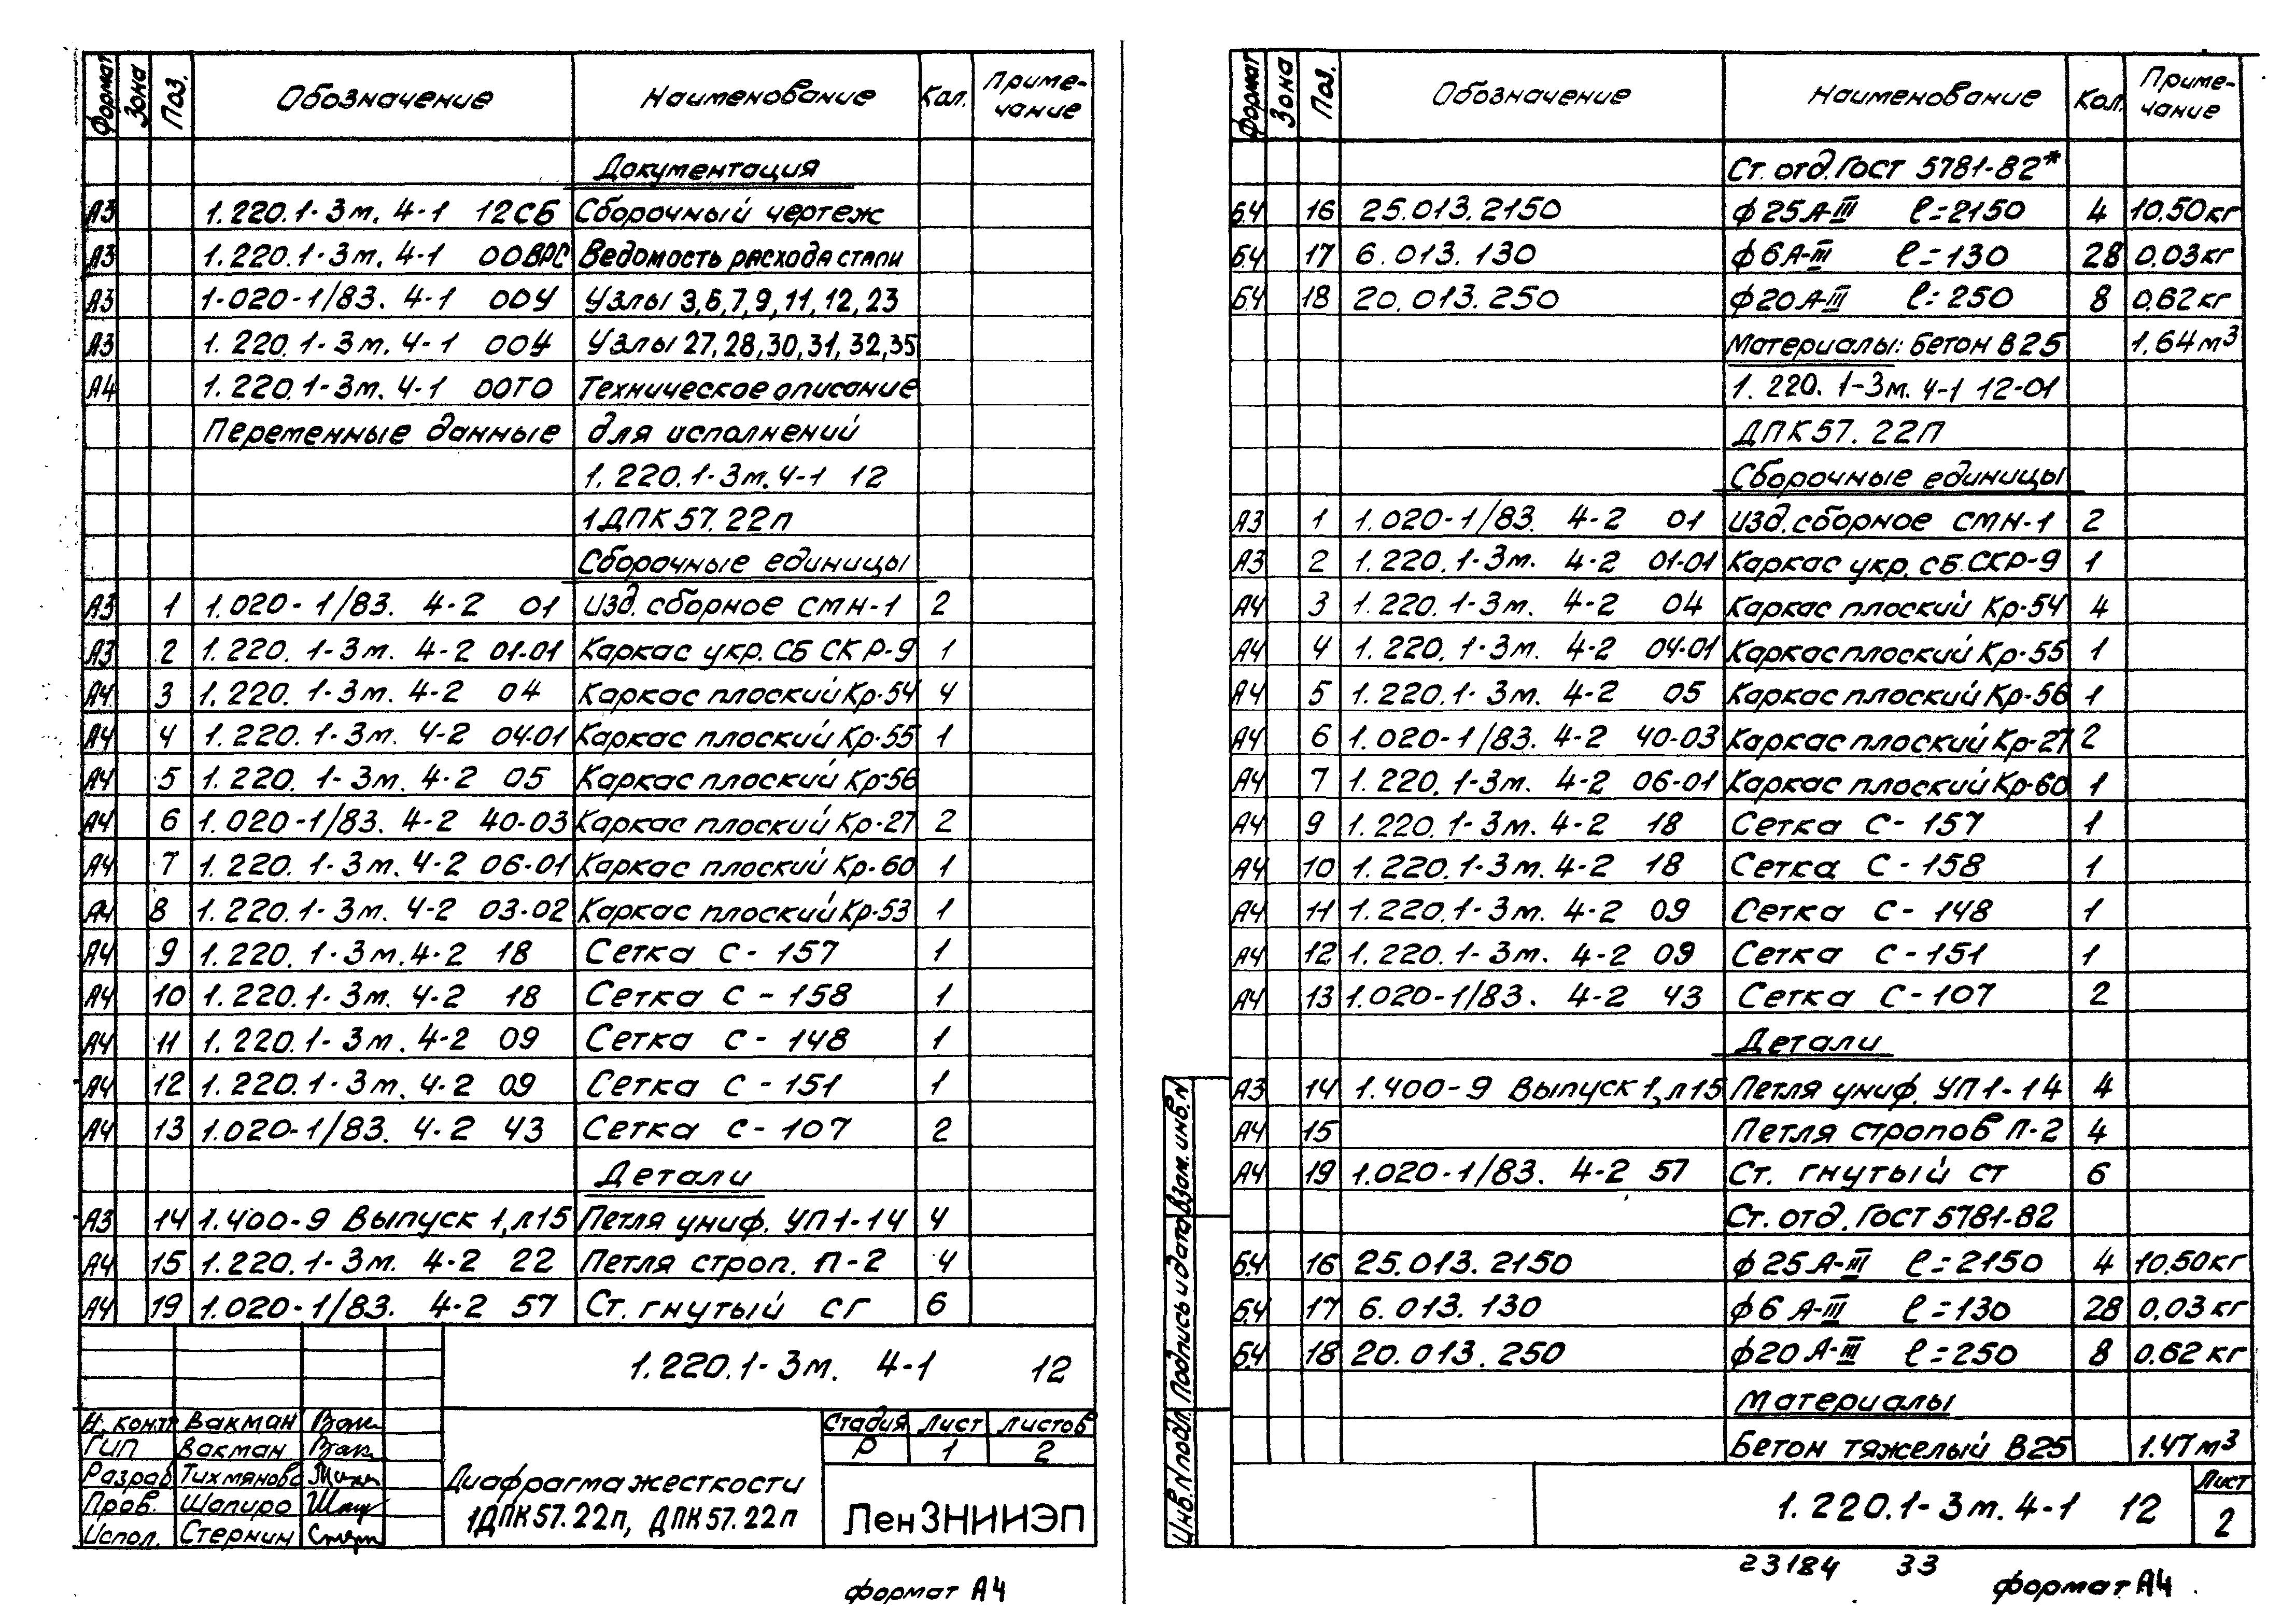 Формат Зона Поз. Обозначение Наименование Кол. Приме-
чание
Документация
А3 1.220.1-3м. 4-1 12СБ Сборочный чертеж
А3 1.220.1-3м. 4-1 00ВРС Ведомость расхода стали
А3 1-020-1/83. 4-1 00У Узлы 3,6,7,9,11,12,23
А3 1.220.1-3м. 4-1 00У Узлы 27,28,30,31,32,35
А4 1.220.1-3м. 4-1 00ТО Техническое описание
Переменные данные для исполнений
1.220.1-3м.4-1 12
1ДПК57.22п
Сборочные единицы
А3 1 1.020-1/83. 4-2 01 Изд.сборное СМН-1 2
А3 2 1.220.1-3м. 4-2 01-01 Каркас укр.СБ СКР-9 1
А4 3 1.220.1-3м. 4-2 04 Каркас плоский Кр-54 4
А4 4 1.220.1-3м. 4-2 04-01 Каркас плоский Кр-55 1
А4 5 1.220.1-3м. 4-2 05 Каркас плоский Кр-56
А4 6 1.020-1/83. 4-2 40-03 Каркас плоский Кр-27 2
А4 7 1.220.1-3м. 4-2 06-01 Каркас плоский Кр-60 1
А4 8 1.220.1-3м. 4-2 03-02 Каркас плоский Кр-53 1
А4 9 1.220.1-3м.4-2 18 Сетка С-157 1
А4 10 1.220.1-3м. 4-2 18 Сетка С-158 1
А4 11 1.220.1-3м.4-2 09 Сетка С-148 1
А4 12 1.220.1-3м.4-2 09 Сетка С-151 1
А4 13 1.020-1/83. 4-2 43 Сетка С-107 2
Детали
А3 14 1.400-9 Выпуск 1,л15 Петля униф. УП1-14 4
А4 15 1.220.1-3м. 4-2 22 Петля строп. П-2 4
А4 19 1.020-1/83. 4-2 57 Ст. гнутый СГ 6
1.220.1-3м. 4-1 12
Н.контр Вакман
ГИП Вакман
Разраб Тихмянова
Пров. Шапиро
Испол. Стернин
Диафрагма жесткости
1ДПК57.22п, ДПК57.22п
Стадия Лист Листов
Р 1 2
ЛенЗНИИЭП
формат А4
Формат Зона Поз. Обозначение Наименование Кол. Приме-
чание
Ст.отд.ГОСТ 5781-82*
Б.4 16 25.013.2150 ф25А-III ℓ=2150 4 10.50кг
Б.4 17 6.013.130 ф6А-III ℓ=130 28 0.03кг
Б.4 18 20.013.250 ф20А-III ℓ=250 8 0.62кг
Материалы: Бетон В25 1.64м³
1.220.1-3м.4-1 12-01
ДПК57.22П
Сборочные единицы
А3 1 1.020-1/83. 4-2 01 Изд.сборное СМН-1 2
А3 2 1.220.1-3м. 4-2 01-01 Каркас укр.СБ.СКР-9 1
А4 3 1.220.1-3м. 4-2 04 Каркас плоский Кр-54 4
А4 4 1.220.1-3м. 4-2 04-01 Каркас плоский Кр-55 1
А4 5 1.220.1-3м. 4-2 05 Каркас плоский Кр-56 1
А4 6 1.020-1/83. 4-2 40-03 Каркас плоский Кр-27 2
А4 7 1.220.1-3м. 4-2 06-01 Каркас плоский Кр-60 1
А4 9 1.220.1-3м.4-2 18 Сетка С-157 1
А4 10 1.220.1-3м.4-2 18 Сетка С-158 1
А4 11 1.220.1-3м. 4-2 09 Сетка С-148 1
А4 12 1.220.1-3м. 4-2 09 Сетка С-151 1
А4 13 1.020-1/83. 4-2 43 Сетка С-107 2
Детали
А3 14 1.400-9 Выпуск 1,л15 Петля униф. УП1-14 4
А4 15 Петля стропов П-2 4
А4 19 1.020-1/83. 4-2 57 Ст. гнутый СТ 6
Ст.отд.ГОСТ 5781-82
Б.4 16 25.013.2150 ф25А-III ℓ=2150 4 10.50кг
Б.4 17 6.013.130 ф6А-III ℓ=130 28 0.03кг
Б.4 18 20.013.250 ф20А-III ℓ=250 8 0.62кг
Материалы
Бетон тяжелый В25 1.47м³
Инв.N подл. Подпись и дата Взам.инв.N
1.220.1-3м.4-1 12
Лист
2
23184 33
формат А4